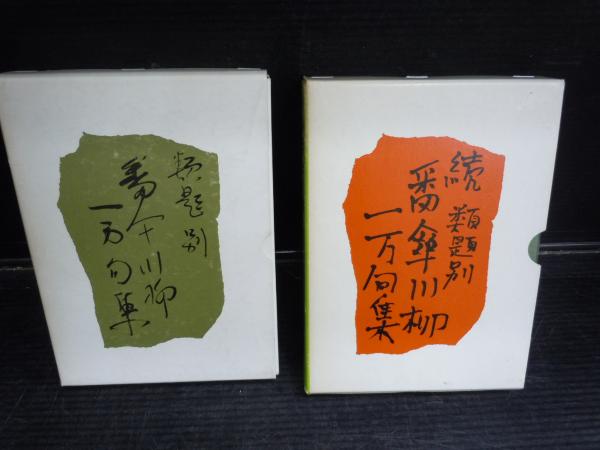 類題別
番傘川柳
一万句集
続類題別
番傘川柳
一万句集